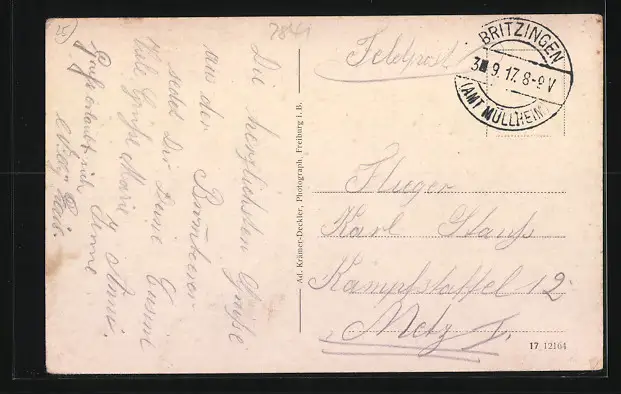 15
2841
Feldpost
BRITZINGEN
3 9.17. 8-9V
(AMT MÜLLHEIM)
Die herzlichsten Grüße
aus der
sendet Dir Deine Cusine
Viele Grüße Marie
Anni.
Gruß erlaubt sich
Ad. Krämer-Deckler, Photograph, Freiburg i. B.
Flieger
Karl
Kampfstaffel 12
Metz
17 12164